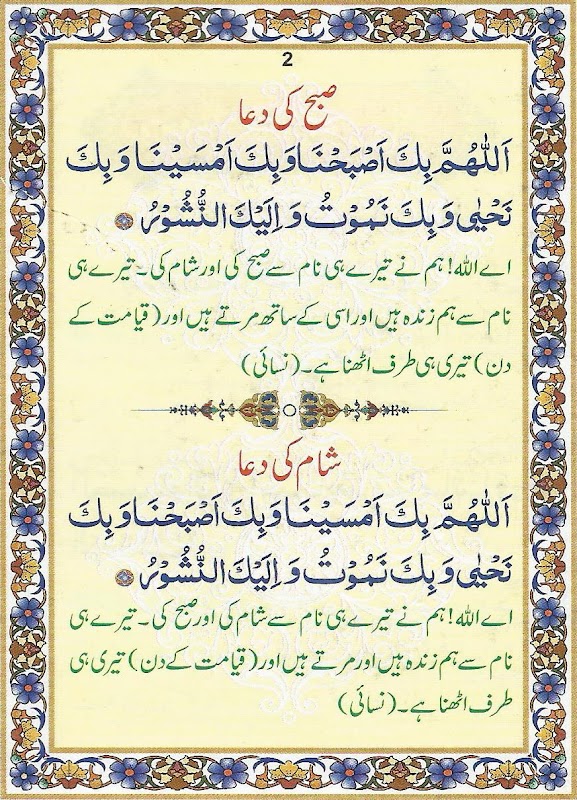 2
صبح کی دعا
اَللّٰهُمَّ بِكَ اَصْبَحْنَا وَبِكَ اَمْسَيْنَا وَبِكَ
نَحْيٰى وَبِكَ نَمُوْتُ وَاِلَيْكَ النُّشُوْرُ
اے اللہ! ہم نے تیرے ہی نام سے صبح کی اور شام کی۔ تیرے ہی
نام سے ہم زندہ ہیں اور اسی کے ساتھ مرتے ہیں اور (قیامت کے
دن) تیری ہی طرف اٹھنا ہے۔ (نسائی)
شام کی دعا
اَللّٰهُمَّ بِكَ اَمْسَيْنَا وَبِكَ اَصْبَحْنَا وَبِكَ
نَحْيٰى وَبِكَ نَمُوْتُ وَاِلَيْكَ النُّشُوْرُ
اے اللہ! ہم نے تیرے ہی نام سے شام کی اور صبح کی۔ تیرے ہی
نام سے ہم زندہ ہیں اور مرتے ہیں اور (قیامت کے دن) تیری ہی
طرف اٹھنا ہے۔ (نسائی)